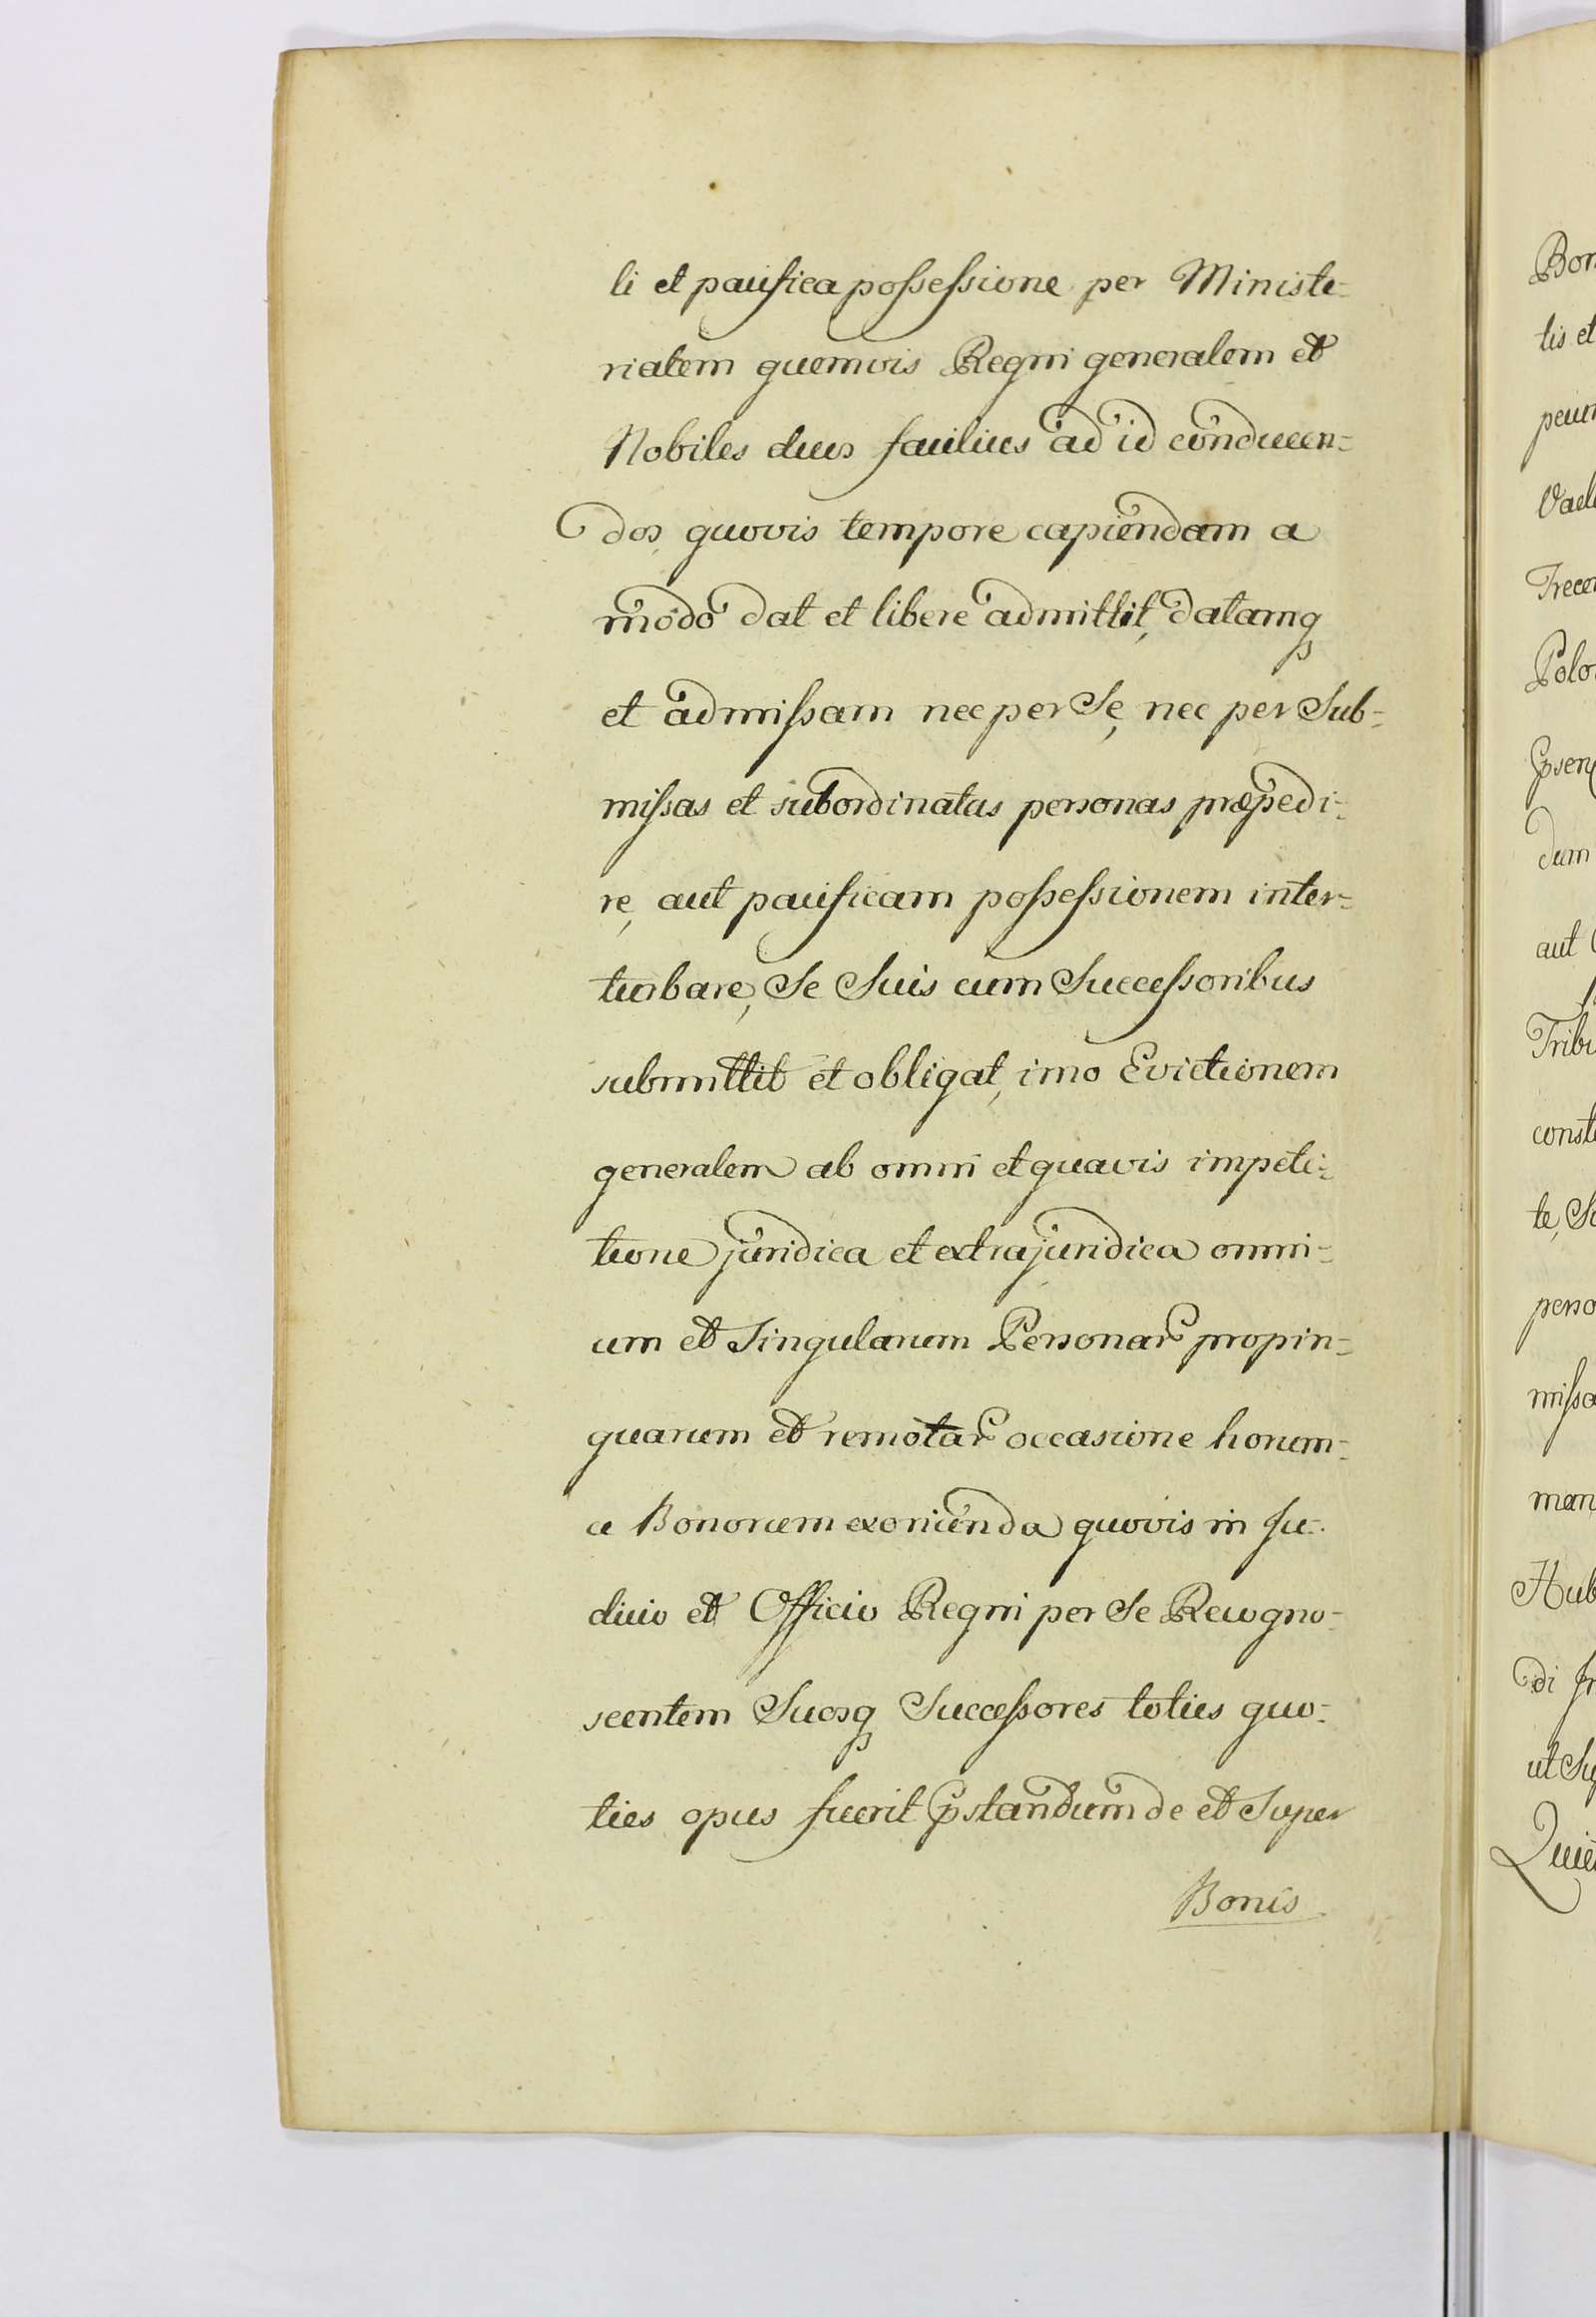 li et pacifica possessione per Ministe-
rialem quemvis Regni generalem et
Nobiles duos facilius ad id conducen-
dos, quovis tempore capiendam a
modo dat et libere admittit, datamq
et admissam nec per Se, nec per Sub-
missas et subordinatas personas præpedi-
re, aut pacificam possessionem inter-
turbare, Se Suis cum Successoribus
submittit et obligat, imo Evictionem
generalem ab omni et quavis impeti-
tione juridica et extrajuridica omni-
um et Singularum Personar propin-
quarum et remotar occasione horum-
ce Bonorum exorienda quovis in Ju-
dicio et Officio Regni per Se Recogno-
scentem Suosq Successores toties quo-
ties opus fuerit pstandum de et Super
Bonis
Bon
tis et
pecun
Vael
Trecen
Polo
dum
aut
Tribu
const
te, S
perso
missa
man
Hub
di
ut Su